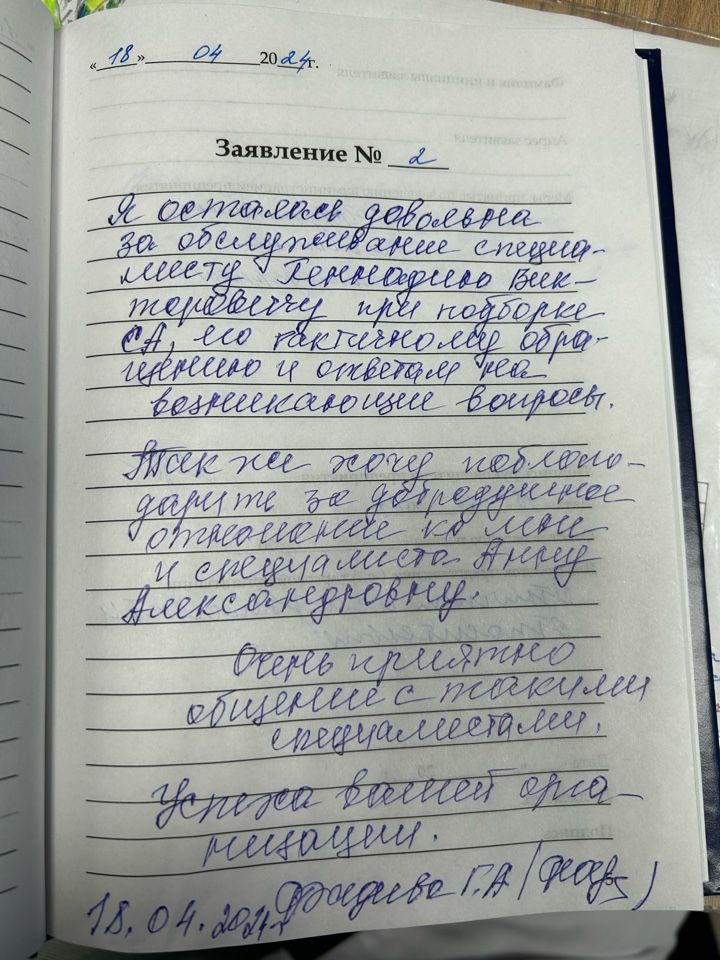 «18» 04 2024г.
Заявление № 2
Я осталась довольна
за обслуживание специа-
листу Геннадию Вик-
торовичу при подборке
СА, его тактичному обра-
щению и ответам на
возникающие вопросы.
Так же хочу поблаго-
дарить за добродушное
отношение ко мне
и специалиста Анну
Александровну.
Очень приятно
общение с такими
специалистами.
Успеха вашей орга-
низации.
18.04.2024 Г.А